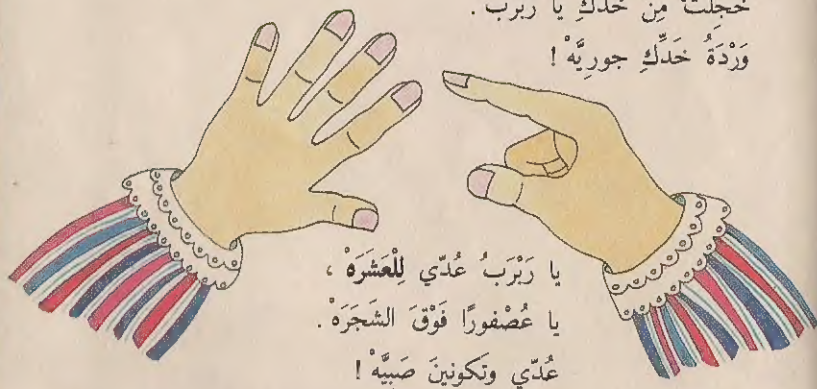 خَجِلَتْ مِنْ خَدِّكِ يا رَبْرَب .
وَرْدَةُ خَدِّكِ جورِيَّهْ !
يا رَبْرَبُ عُدّي لِلْعَشَرَهْ ،
يا عُصْفورًا فَوْقَ الشَجَرَهْ .
عُدّي وتَكونينَ صَبِيَّهْ !